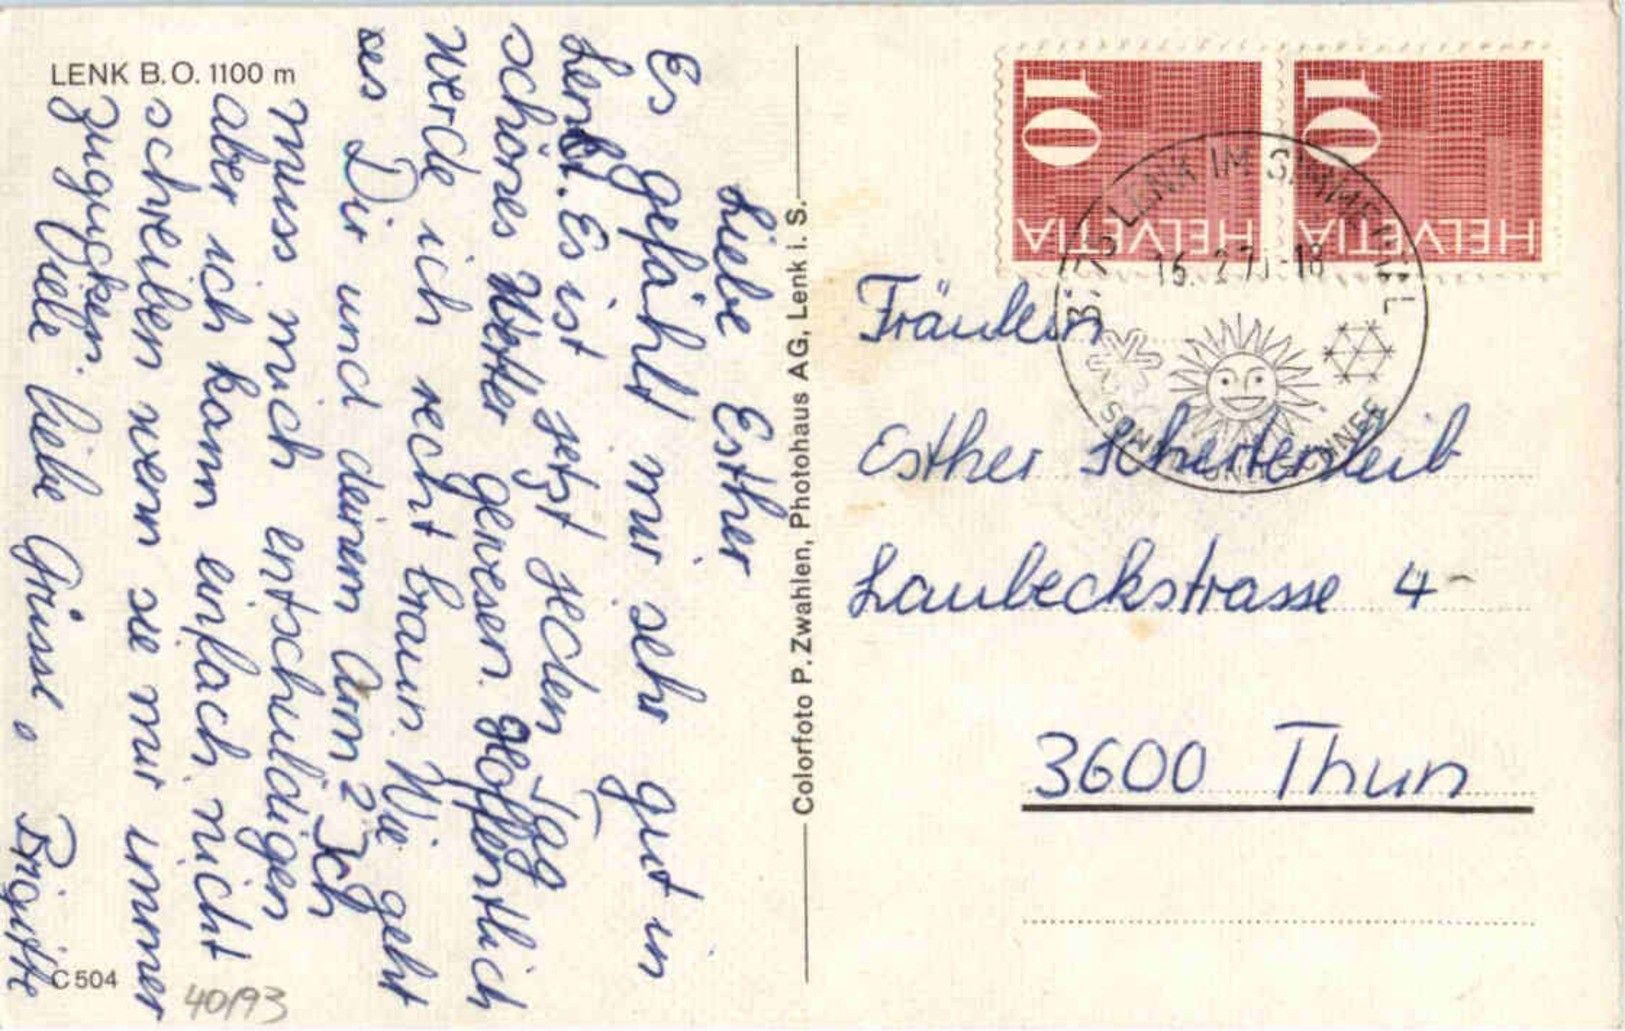 LENK B.O. 1100 m
Liebe Esther
Es gefählt mir sehr gut in
Lenk. Es ist jetzt jeden Tag
schönes Wetter gewesen. Hoffentlich
werde ich recht braun. Wie geht
es Dir und deinem Arm? Ich
muss mich entschuldigen
aber ich kann einfach nicht
schreiben wenn sie mir immer
zugucken.
Viele liebe Grüsse, Brigitte
C 504
40/93
Colorfoto P. Zwahlen, Photohaus AG, Lenk i. S.
10
HELVETIA
10
HELVETIA
LENK IM SIMMENTAL
15. 2. 71 - 18
Fräulein
Esther
Laubeckstrasse 4
3600 Thun